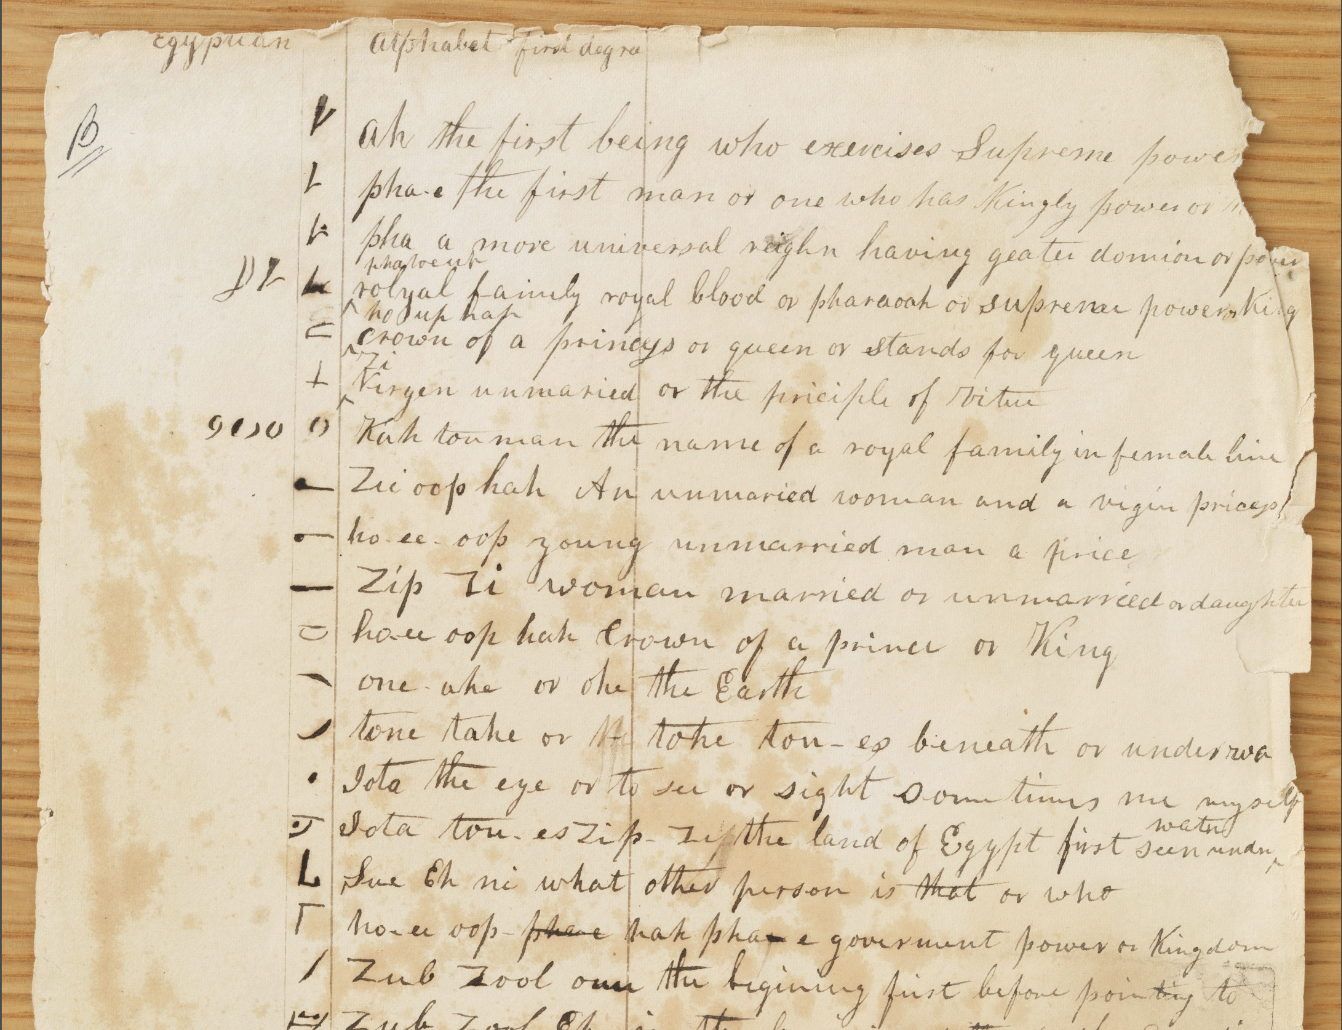 Egyptian alphabet first degre
B
Ah the first being who exercises Supreme power
pha-e the first man or one who has Kingly power or
pha a more universal reighn having geater domion or power
phatoeup
rolyal family royal blood or pharaoah or supreme power or King
ho up hah
crown of a princess or queen or stands for queen
Zi
Virgen unmaried or the priciple of Virtue
Kah tou man the name of a royal family in female line
Zi oop hah An unmaried woman and a vigin pricess
ho-ee-oop young unmarried man a price
Zip Zi woman married or unmarried or daughter
ho-ee oop hah Crown of a prince or King
one ahe or ohe the Earth
tone tahe or tohe tou-es beneath or under wa
Iota the eye or to see or sight sometimes me myself
water
Iota tou-es Zip-Zi the land of Egypt first seen under
Sue Eh ni what other person is that or who
ho-ee oop-pha-e hah pha-e goverment power or Kingdom
Zub Zool oun the begining first before pointing to
Zub Zool Eh in the